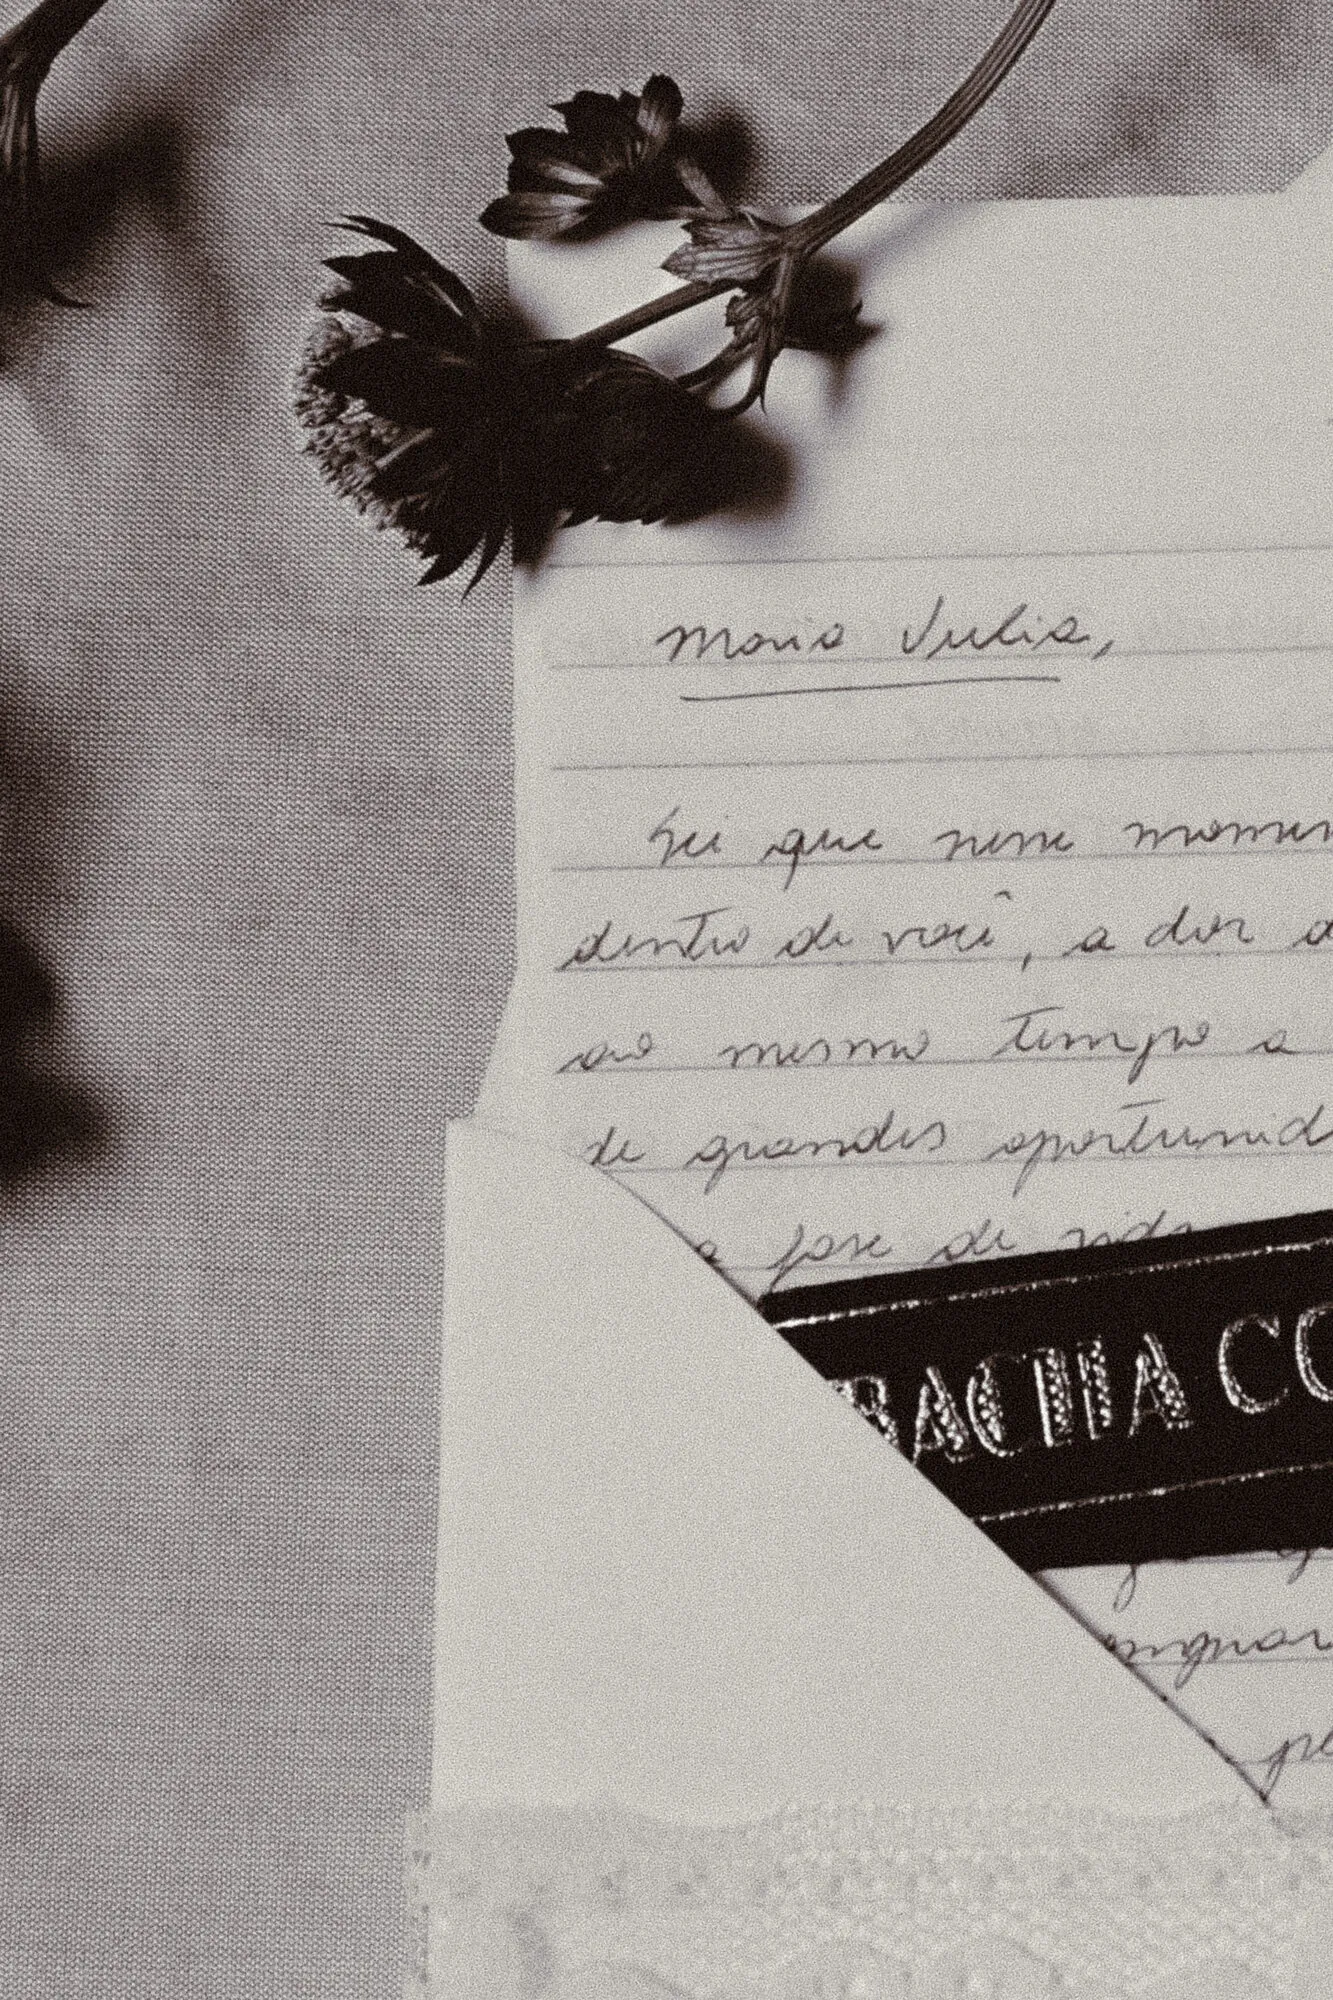 Maria Julia,
Sei que nesse momen
dentro de você, a dor d
ao mesmo tempo a
de grandes oportunid
a fase de vida
BACHA CO
pe